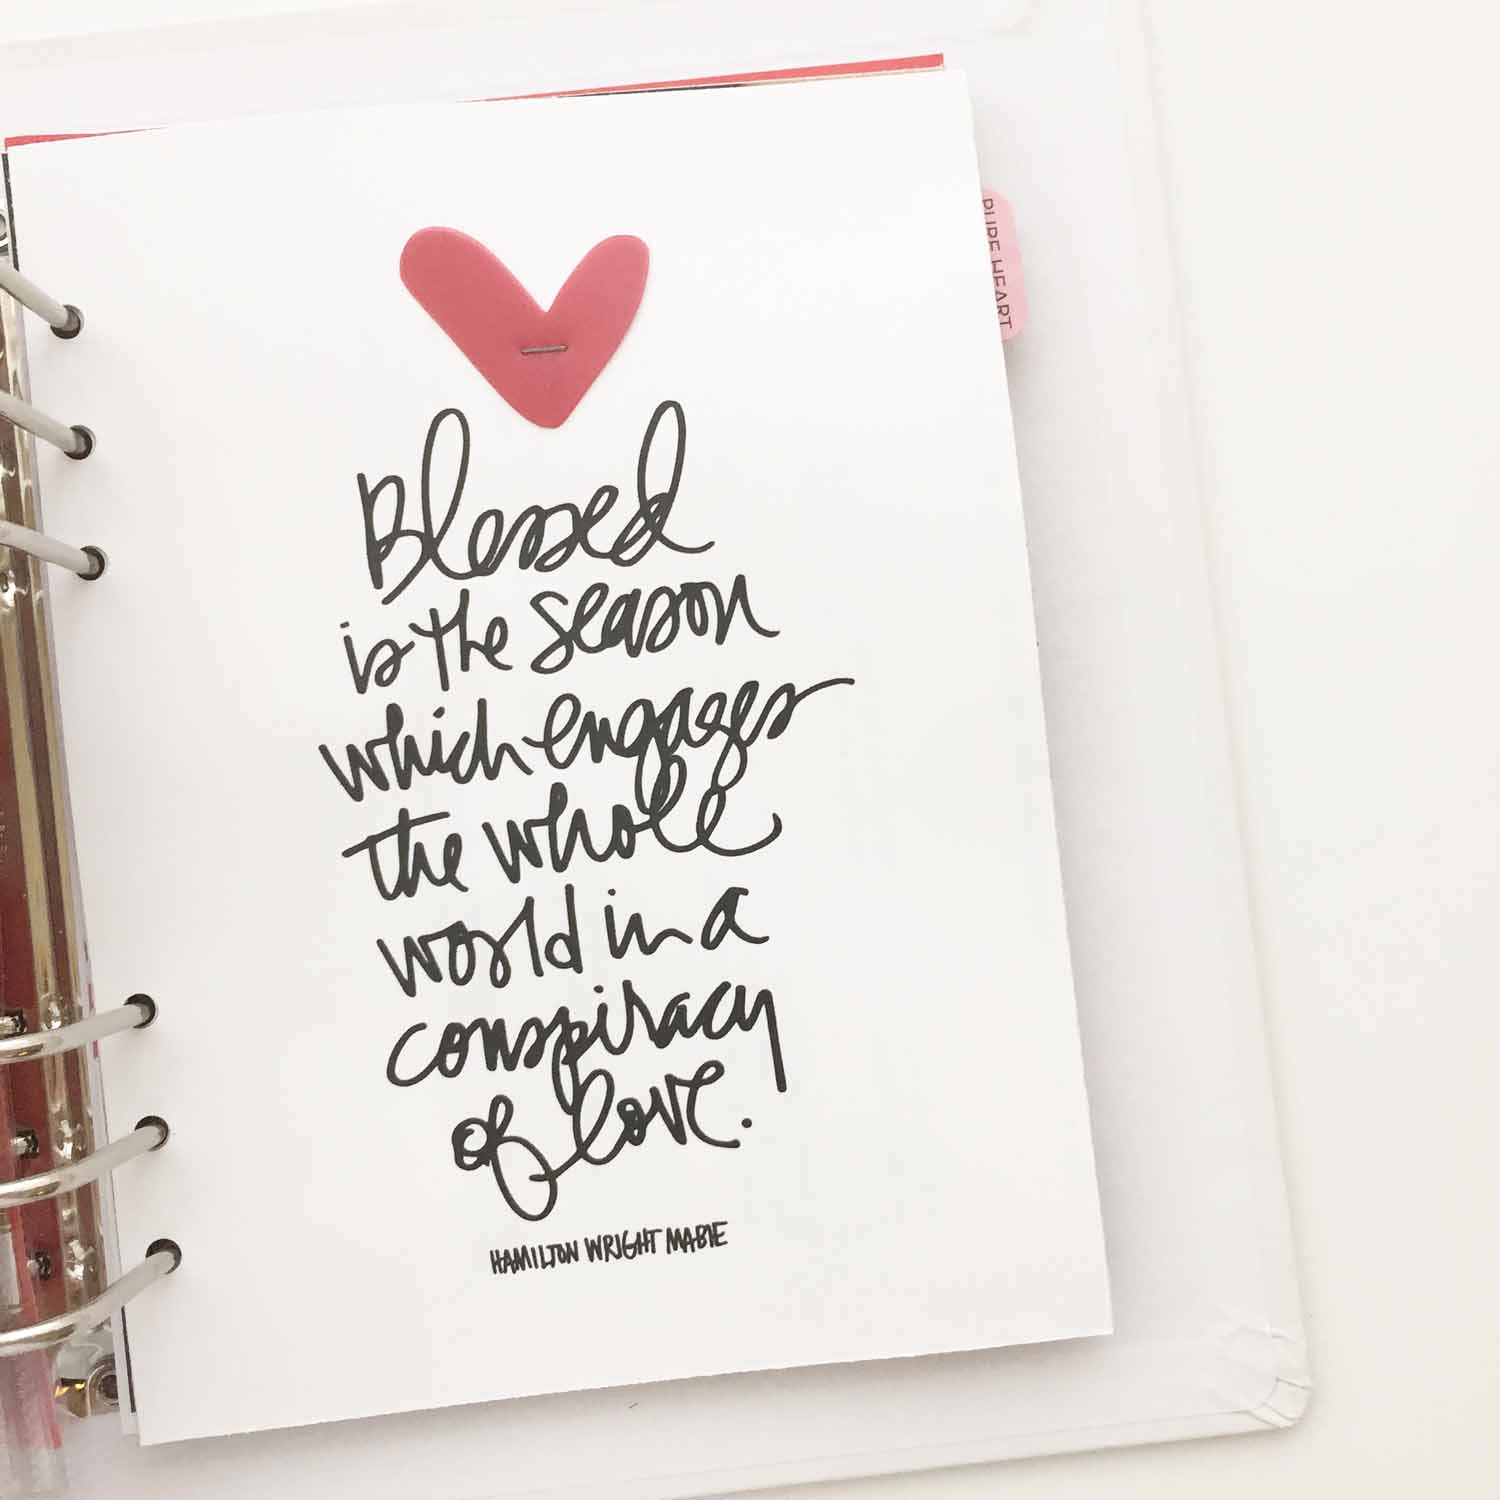 PURE HEART
Blessed
is the season
which engages
the whole
world in a
conspiracy
of love.
HAMILTON WRIGHT MABIE